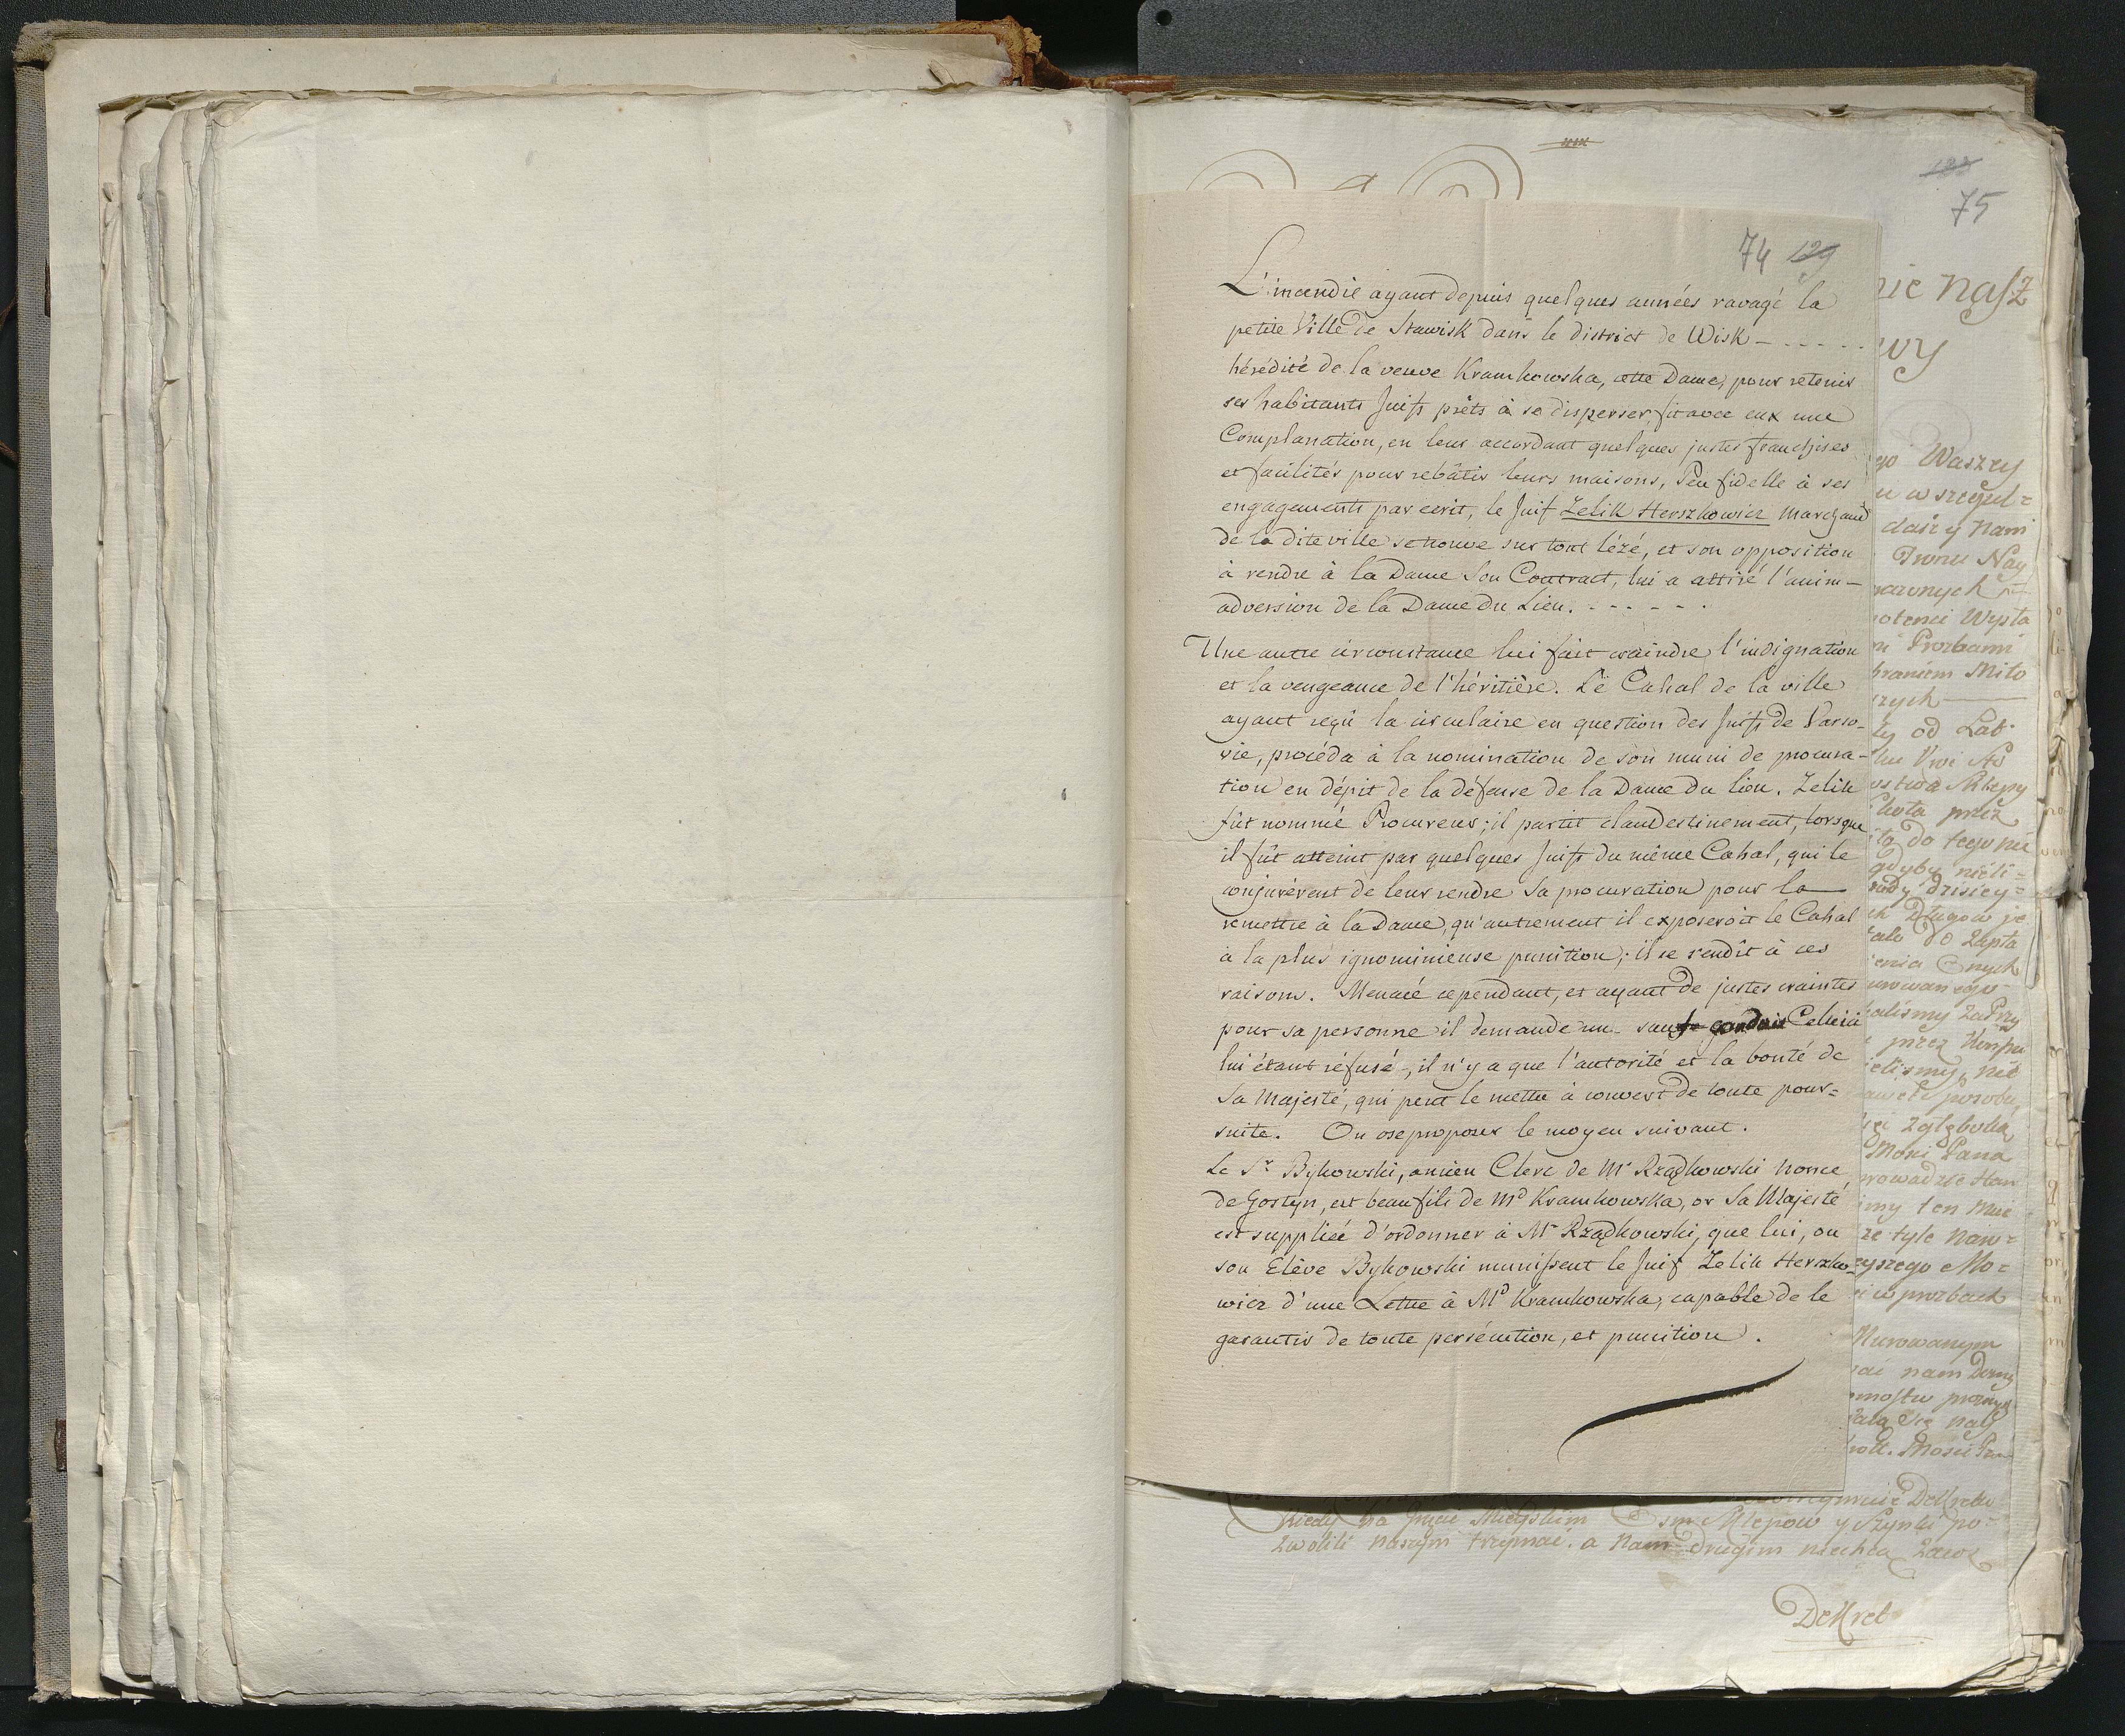 75
74 129
L'incendie ayant depuis quelques années ravagé la
petite Ville de Stawisk dans le district de Wisk - - - - - -
hérédité de la veuve Kramkowska, cette Dame, pour retenir
ses habitants Juifs prêts à se disperser, fit avec eux une
Complanation, en leur accordant quelques justes franchises
et facilités pour rebâtir leurs maisons, Peu fidelle à ses
engagements par ecrit, le Juif Zelik Herszkowicz marchand
de la dite ville se trouve sur tout lézé, et son opposition
à rendre à la Dame son Contract, lui a attiré l'anim-
adversion de la Dame du Lieu. - - - - - -
Une autre circonstance lui fait craindre l'indignation
et la vengeance de l'héritière. Le Cahal de la ville
ayant reçû la circulaire en question des Juifs de Varso-
vie, procéda à la nomination de son muni de procura-
tion en dépit de la défense de la Dame du lieu. Zelik
fût nommé Procureur; il partit clandestinement, lorsque
il fût atteint par quelques Juifs du même Cahal, qui le
conjurérent de leur rendre sa procuration pour la
remettre à la Dame, qu'autrement il exposeroit le Cahal
à la plus ignominieuse punition; il se rendît à ces
raisons. Menacé cependant, et ayant de justes craintes
pour sa personne il demande un Celuici
lui étant réfusé, il n'y a que l'autorité et la bonté de
Sa Majesté, qui peut le mettre à couvert de toute pour-
suite. On ose proposer le moyen suivant.
Le Sr Bykowski, ancien Clerc de Mr Rządkowski Nonce
de Gostyn, est beaufils de Md Kramkowska, or Sa Majesté
est suppliée d'ordonner à Mr Rządkowski, que lui, ou
son Elève Bykowski munissent le Juif Zelik Herszko-
wicz d'une Lettre à Md Kramkowska, capable de le
garantir de toute persécution, et punition.
nasz
wy
Waszry
daszy nam
Tronu Nay
Wypła
Prozbami
Miło
od Lat
przez
do tego nie
gdyby nieli-
dzisiey-
Długow je
do Zapła
Onych
Pana
ten
Naw-
Mo-
w prozbach
Murowanym
nam
nay
Dekretu
Kiedy na Sklepow y Szynki po-
zwolili naszym trzymać. a Nam drugim niechcą
Dekret